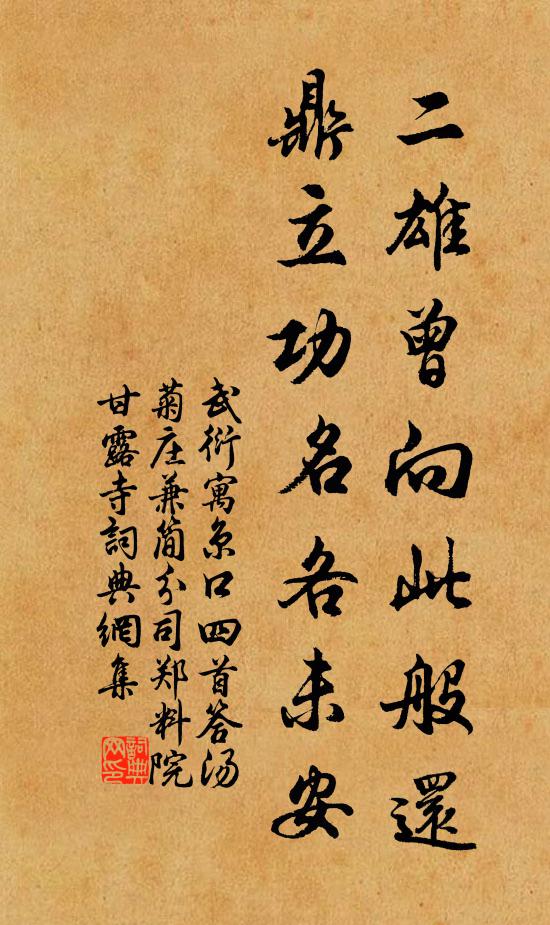 二雄曾向此般還
鼎立功名各未安
武衍寓京口四首答汤
菊庄兼簡分司郑料院
甘露寺詞典網集
詞典网印